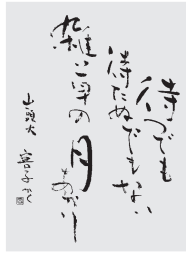 待つでも
待たぬでもない
雑草の
月あかり
山頭火
喜子かく